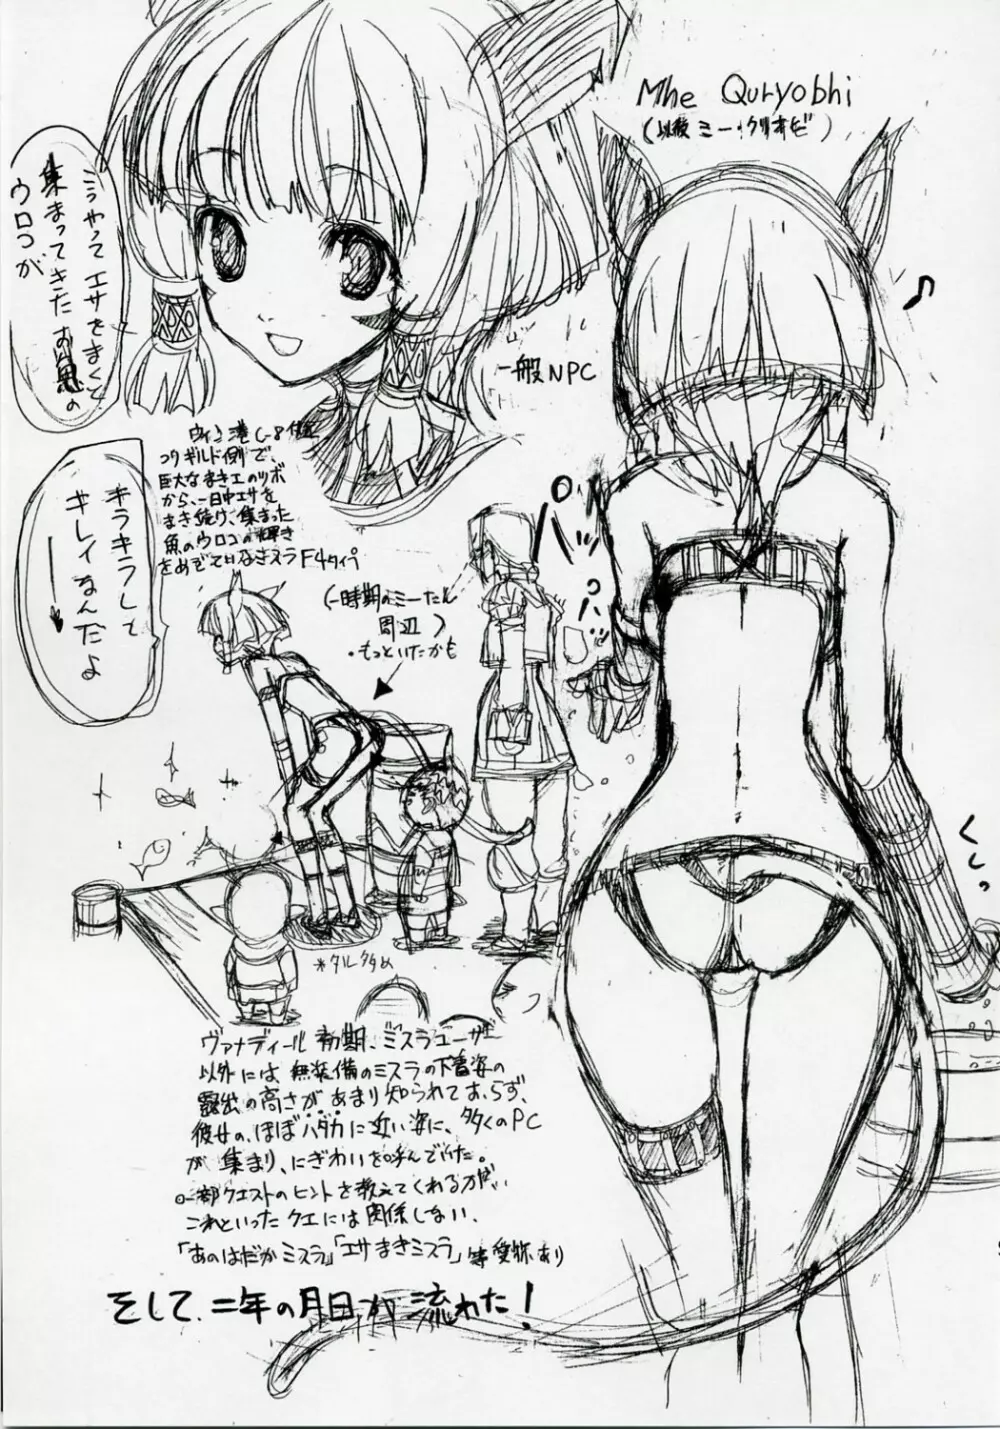 Mhe Quryobhi
(以後 ミー・クリオビ)
こうやって エサをまくと
集まってきた お魚の
ウロコが
一般NPC
ウィン港 C-8 付近
コウギルド側で、
巨大なまきエのツボ
から、一日中エサを
まき続け、集まった
魚のウロコの輝き
をめでているミスラ F4タイプ
キラキラして
キレイなんだよ
(一時期のミーたん
周辺)
・もっといたかも
パッパッ
くしっ
*タル多め
ヴァナディール初期、ミスラユーザー
以外には 無装備のミスラの下着姿の
露出の高さが あまり知られておらず、
彼女の、ほぼハダカに近い姿に、多くのPC
が 集まり、にぎわいを呼んでいた。
一部クエストのヒントを教えてくれる方だが、
これといったクエには関係しない、
「あのはだかミスラ」「エサまきミスラ」等愛称あり
そして、二年の月日が流れた!